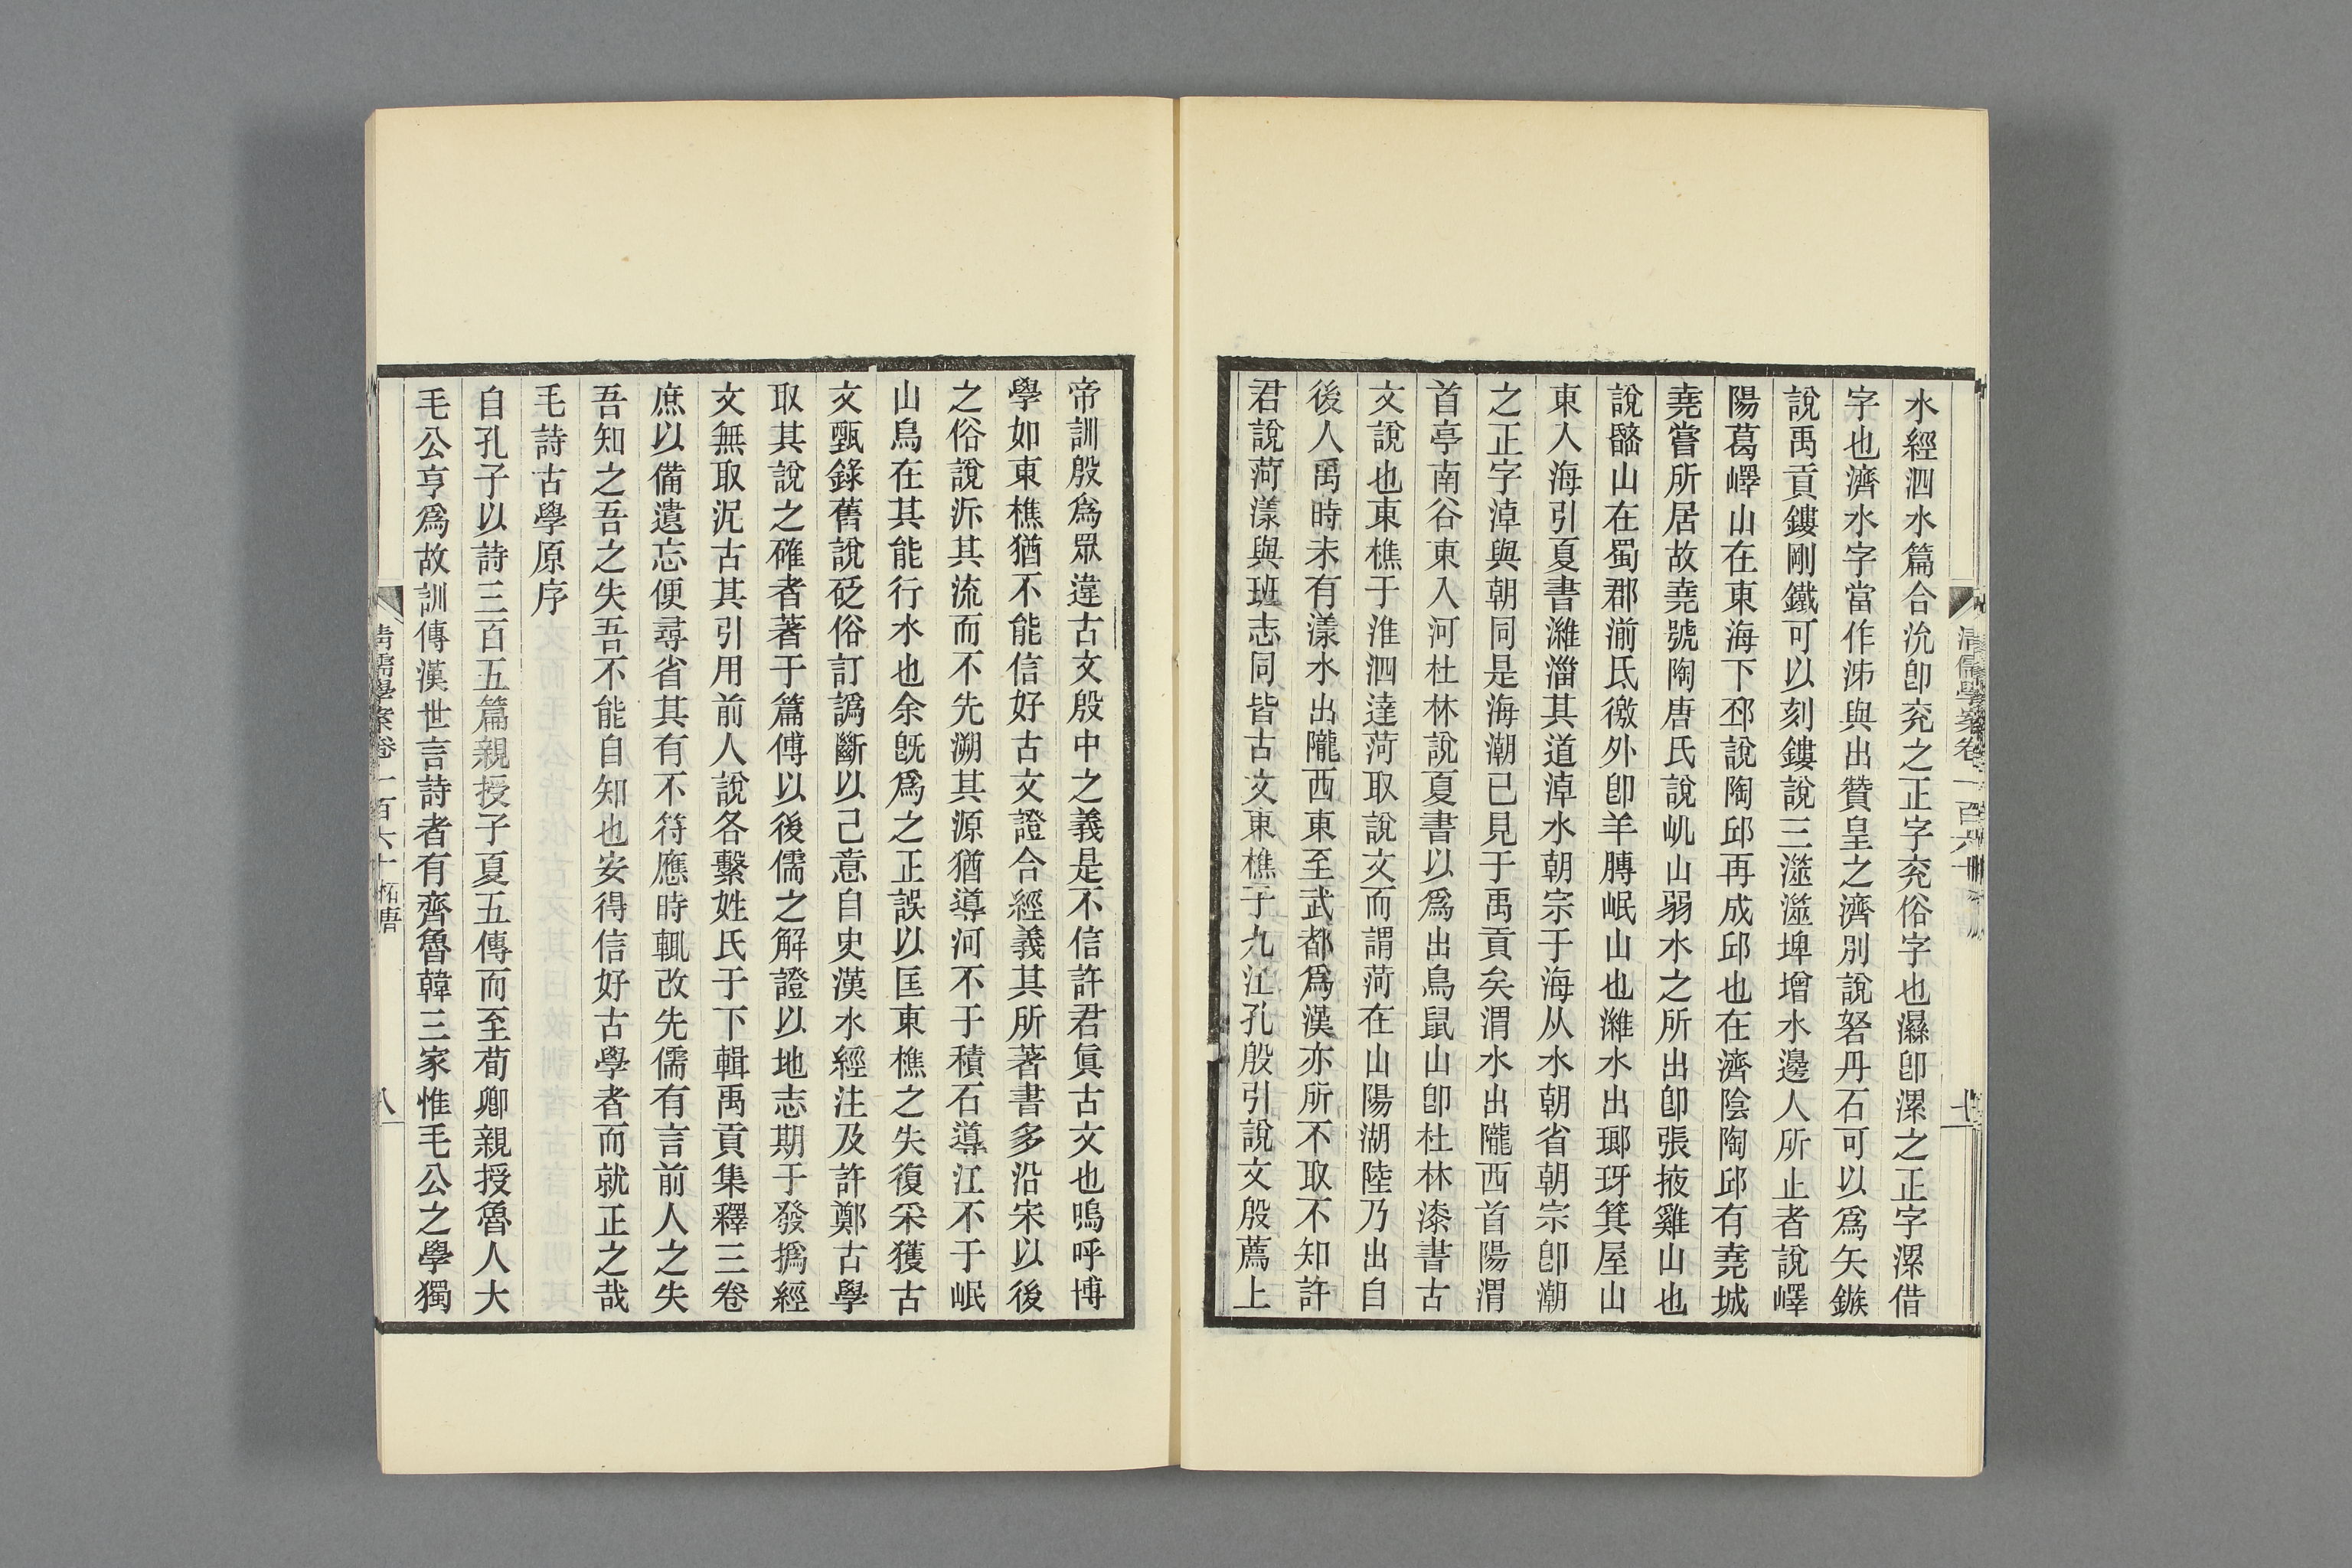 水經泗水篇合沇卽兖之正字兖俗字也濕卽漯之正字漯借
字也濟水字當作泲與出贊皇之濟別說砮丹石可以爲矢鏃
說禹貢鏤剛鐵可以刻鏤說三澨澨埤增水邊人所止者說嶧
陽葛嶧山在東海下邳說陶邱再成邱也在濟陰陶邱有堯城
堯嘗所居故堯號陶唐氏說屼山弱水之所出卽張掖雞山也
說𨻶山在蜀郡湔氐徼外卽羊膊岷山也濰水出瑯玡箕屋山
東入海引夏書濰淄其道淖水朝宗于海从水朝省朝宗卽潮
之正字淖與朝同是海潮已見于禹貢矣渭水出隴西首陽渭
首亭南谷東入河杜林說夏書以爲出鳥鼠山卽杜林漆書古
文說也東樵于淮泗達菏取說文而謂菏在山陽湖陸乃出自
後人禹時未有漾水出隴西東至武都爲漢亦所不取不知許
君說菏漾與班志同皆古文東樵于九江孔殷引說文殷薦上
帝訓殷爲眾違古文殷中之義是不信許君眞古文也嗚呼博
學如東樵猶不能信好古文證合經義其所著書多沿宋以後
之俗說泝其流而不先溯其源猶導河不于積石導江不于岷
山烏在其能行水也余旣爲之正誤以匡東樵之失復采獲古
文甄錄舊說砭俗訂譌斷以己意自史漢水經注及許鄭古學
取其說之確者著于篇傅以後儒之解證以地志期于發撝經
文無取泥古其引用前人說各繫姓氏于下輯禹貢集釋三卷
庶以備遺忘便尋省其有不符應時輒改先儒有言前人之失
吾知之吾之失吾不能自知也安得信好古學者而就正之哉
毛詩古學原序
自孔子以詩三百五篇親授子夏五傳而至荀卿親授魯人大
毛公亨爲故訓傳漢世言詩者有齊魯韓三家惟毛公之學獨
清儒學案卷一百六十 柘唐
八